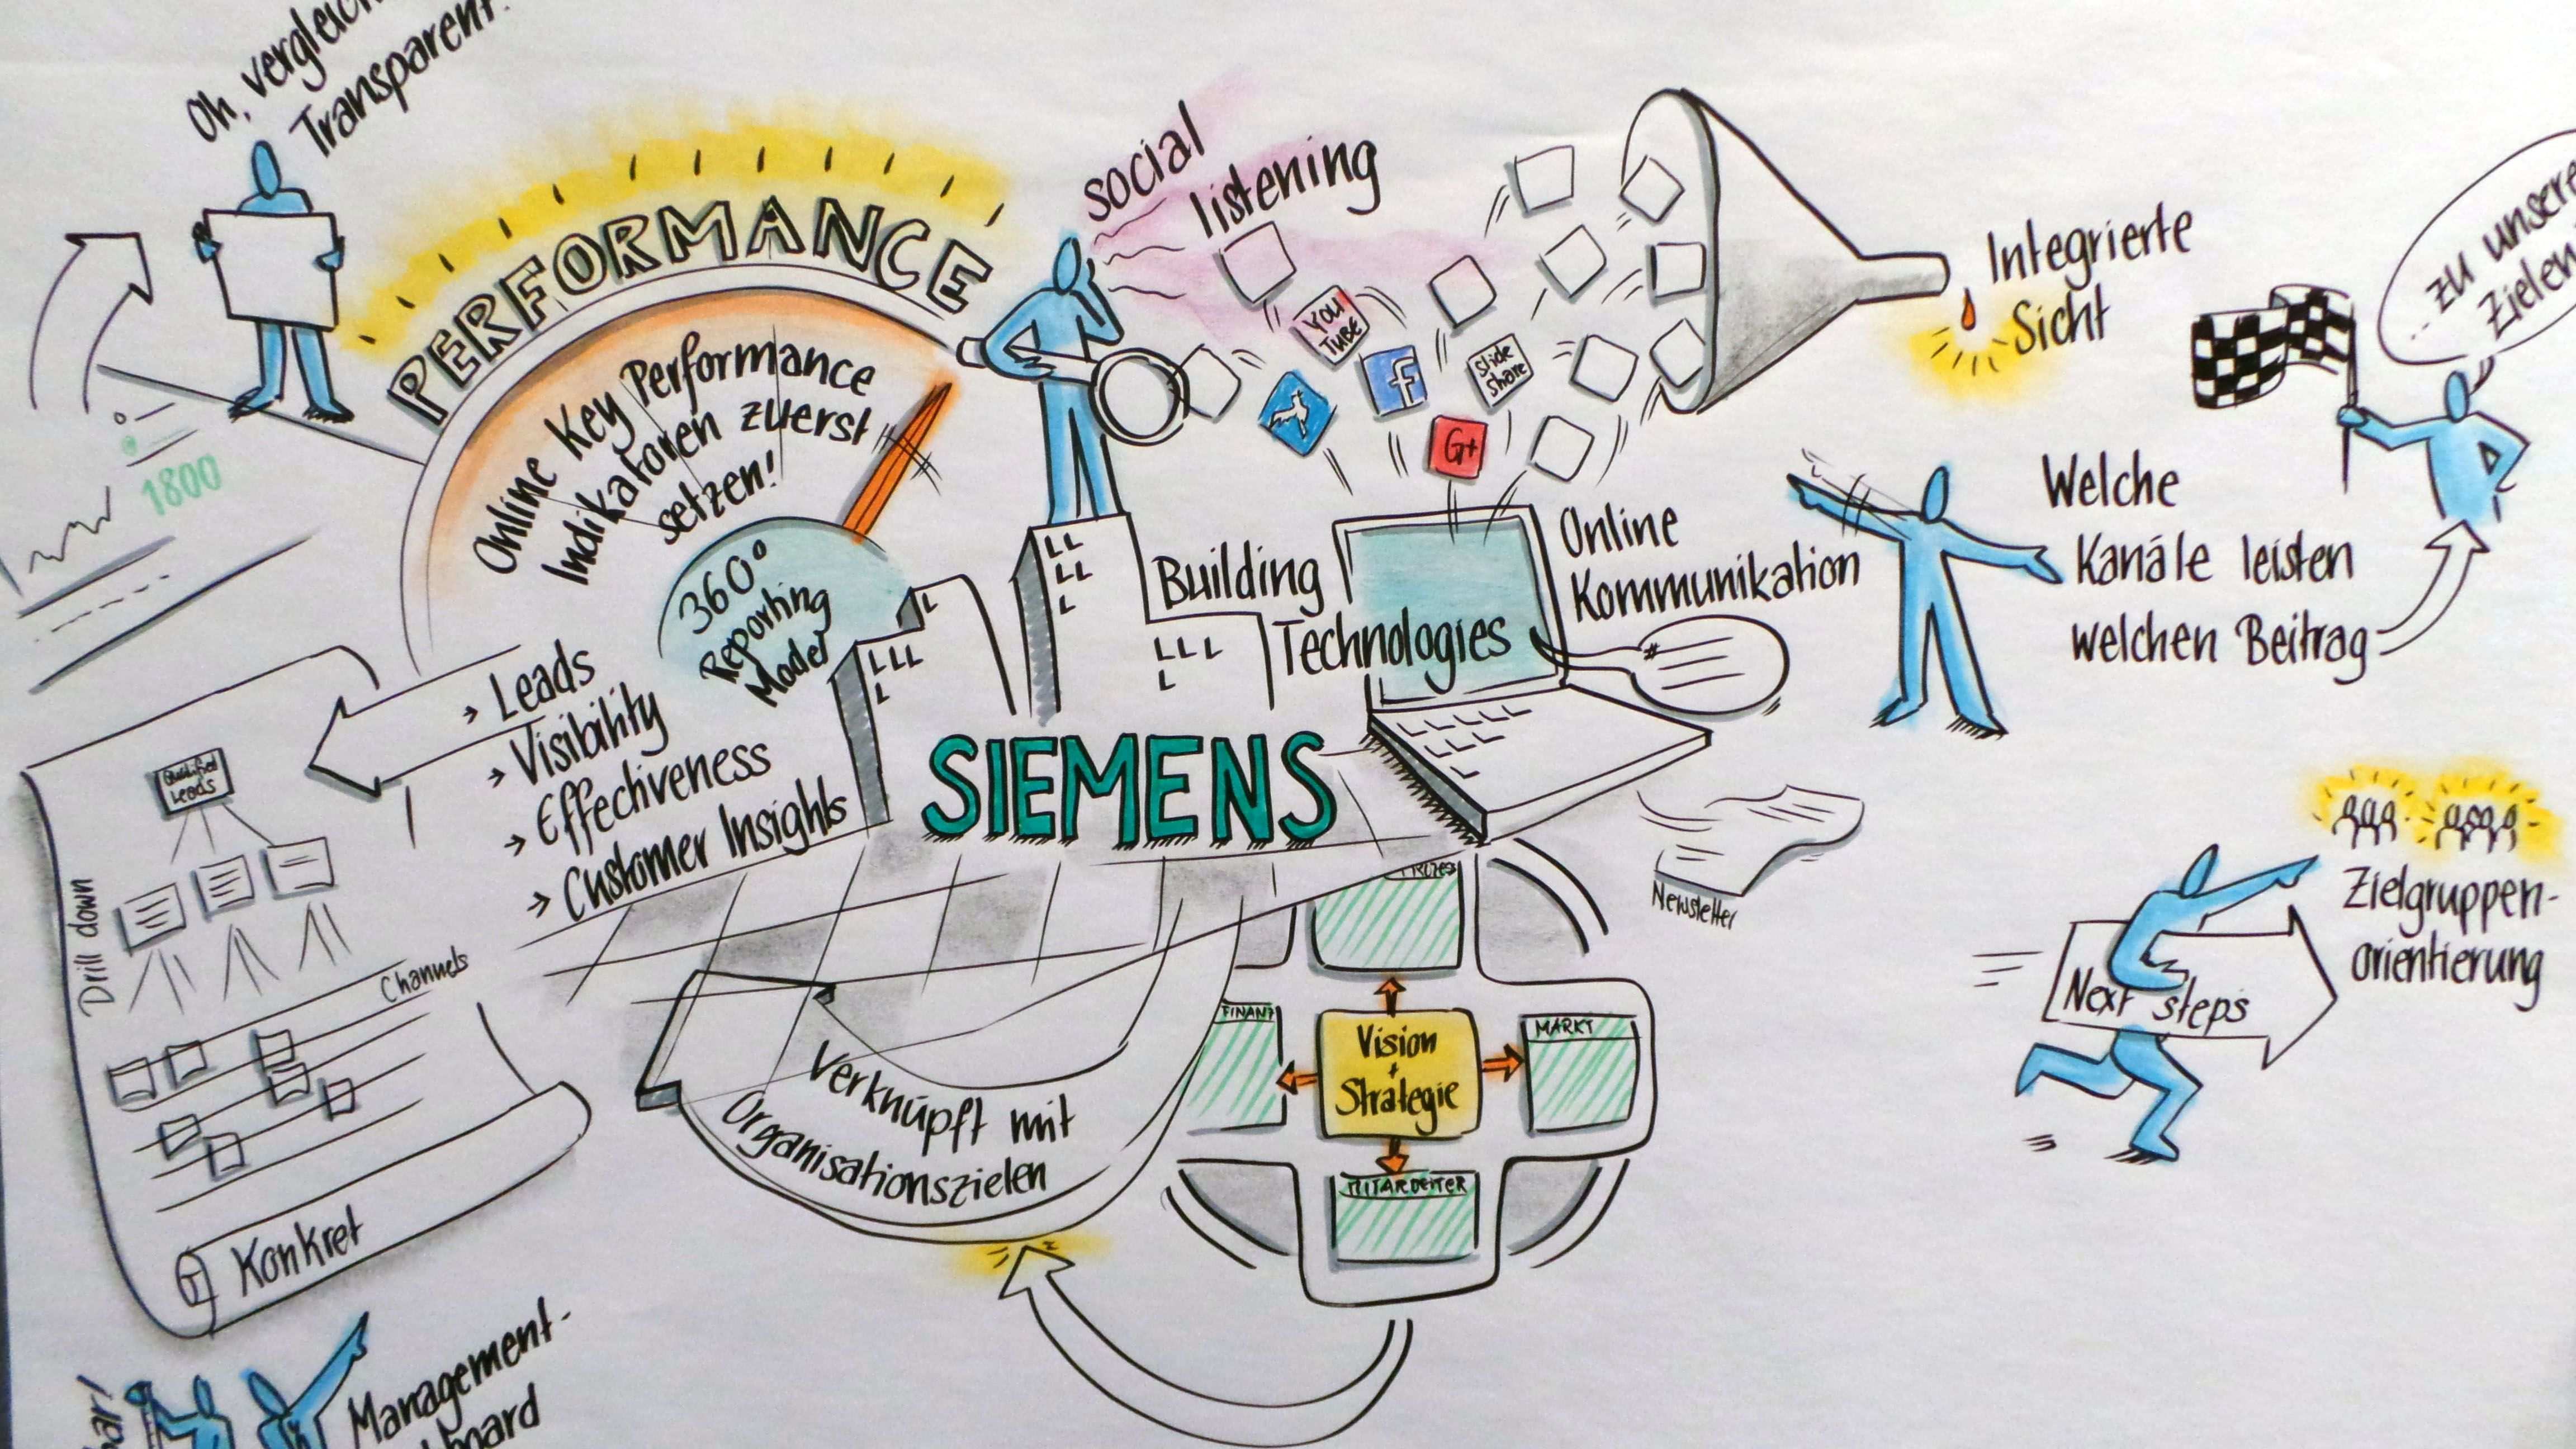 Oh,
Transparent
PERFORMANCE
Online Key Performance
Indikatoren zuerst
setzen!
360°
Reporting
Model
1800
social
listening
YOU
TUBE
f
Slide
Share
G+
Integrierte
Sicht
zu unsere
Zielen
Welche
Kanäle leisten
welchen Beitrag
Online
Kommunikation
Building
Technologies
SIEMENS
Newsletter
Leads
Visibility
Effectiveness
Customer Insights
Qualified
Leads
Drill down
Channels
Konkret
Verknüpft mit
Organisationszielen
FINANZ
MARKT
MITARBEITER
Vision
+
Strategie
Next steps
Zielgruppen-
orientierung
Management-
board
bar!